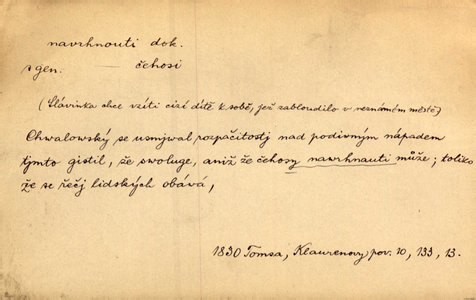 navrhnouti dok.
s gen. čehosi
(Slávinka chce vzíti cizí dítě k sobě, jež zabloudilo v neznámém městě)
Chwalowský se usmjwal rozpačitostj nad podivným nápadem
tjmto gistil, že swoluge, aniž že čehosy nawrhnauti může; toliko
že se řečj lidských obává,
1830 Tomsa, Klaurenovy pov. 10, 133, 13.